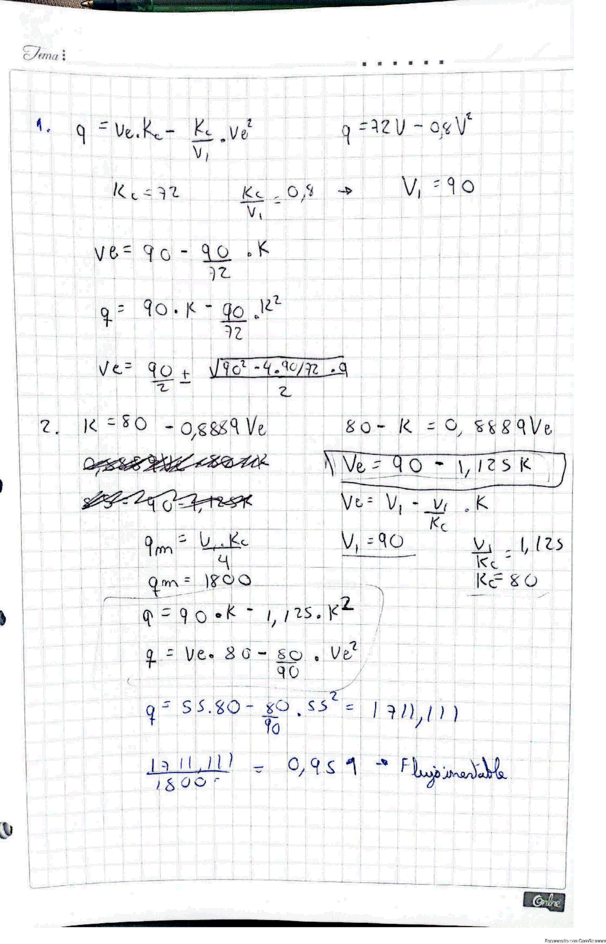 Tema :
1. q = Ve.Kc - Kc/V1 . Ve² q = 72V - 0,8V²
Kc = 72 Kc/V1 = 0,8 → V1 = 90
Ve = 90 - 90/72 . K
q = 90.K - 90/72 . K²
Ve = 90/2 ± √(90² - 4.90/72 . q)/2
2. K = 80 - 0,8889Ve 80 - K = 0,8889Ve
Ve = 90 - 1,125K
Ve = V1 - V1/Kc . K
qm = V1.Kc/4 V1 = 90 V1/Kc = 1,125
qm = 1800 Kc = 80
q = 90.K - 1,125.K²
q = Ve.80 - 80/90 . Ve²
q = 55.80 - 80/90 . 55² = 1711,111
1711,111/1800 = 0,959 → Flujo inestable
Online